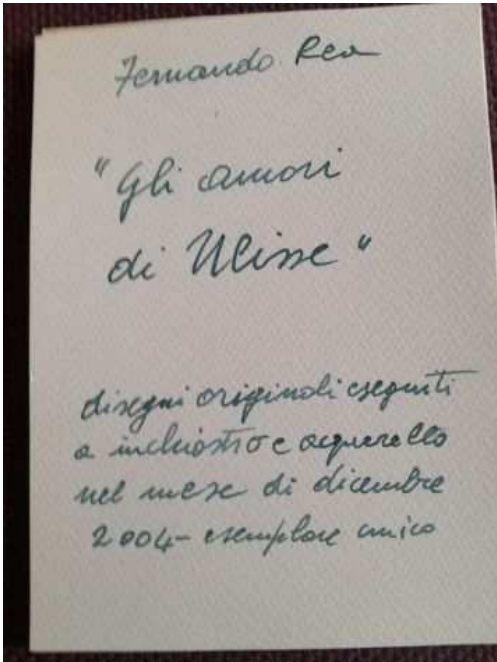 Fernando Rea
"Gli amori
di Ulisse"
disegni originali eseguiti
a inchiostro e acquerello
nel mese di dicembre
2004 - esemplare unico